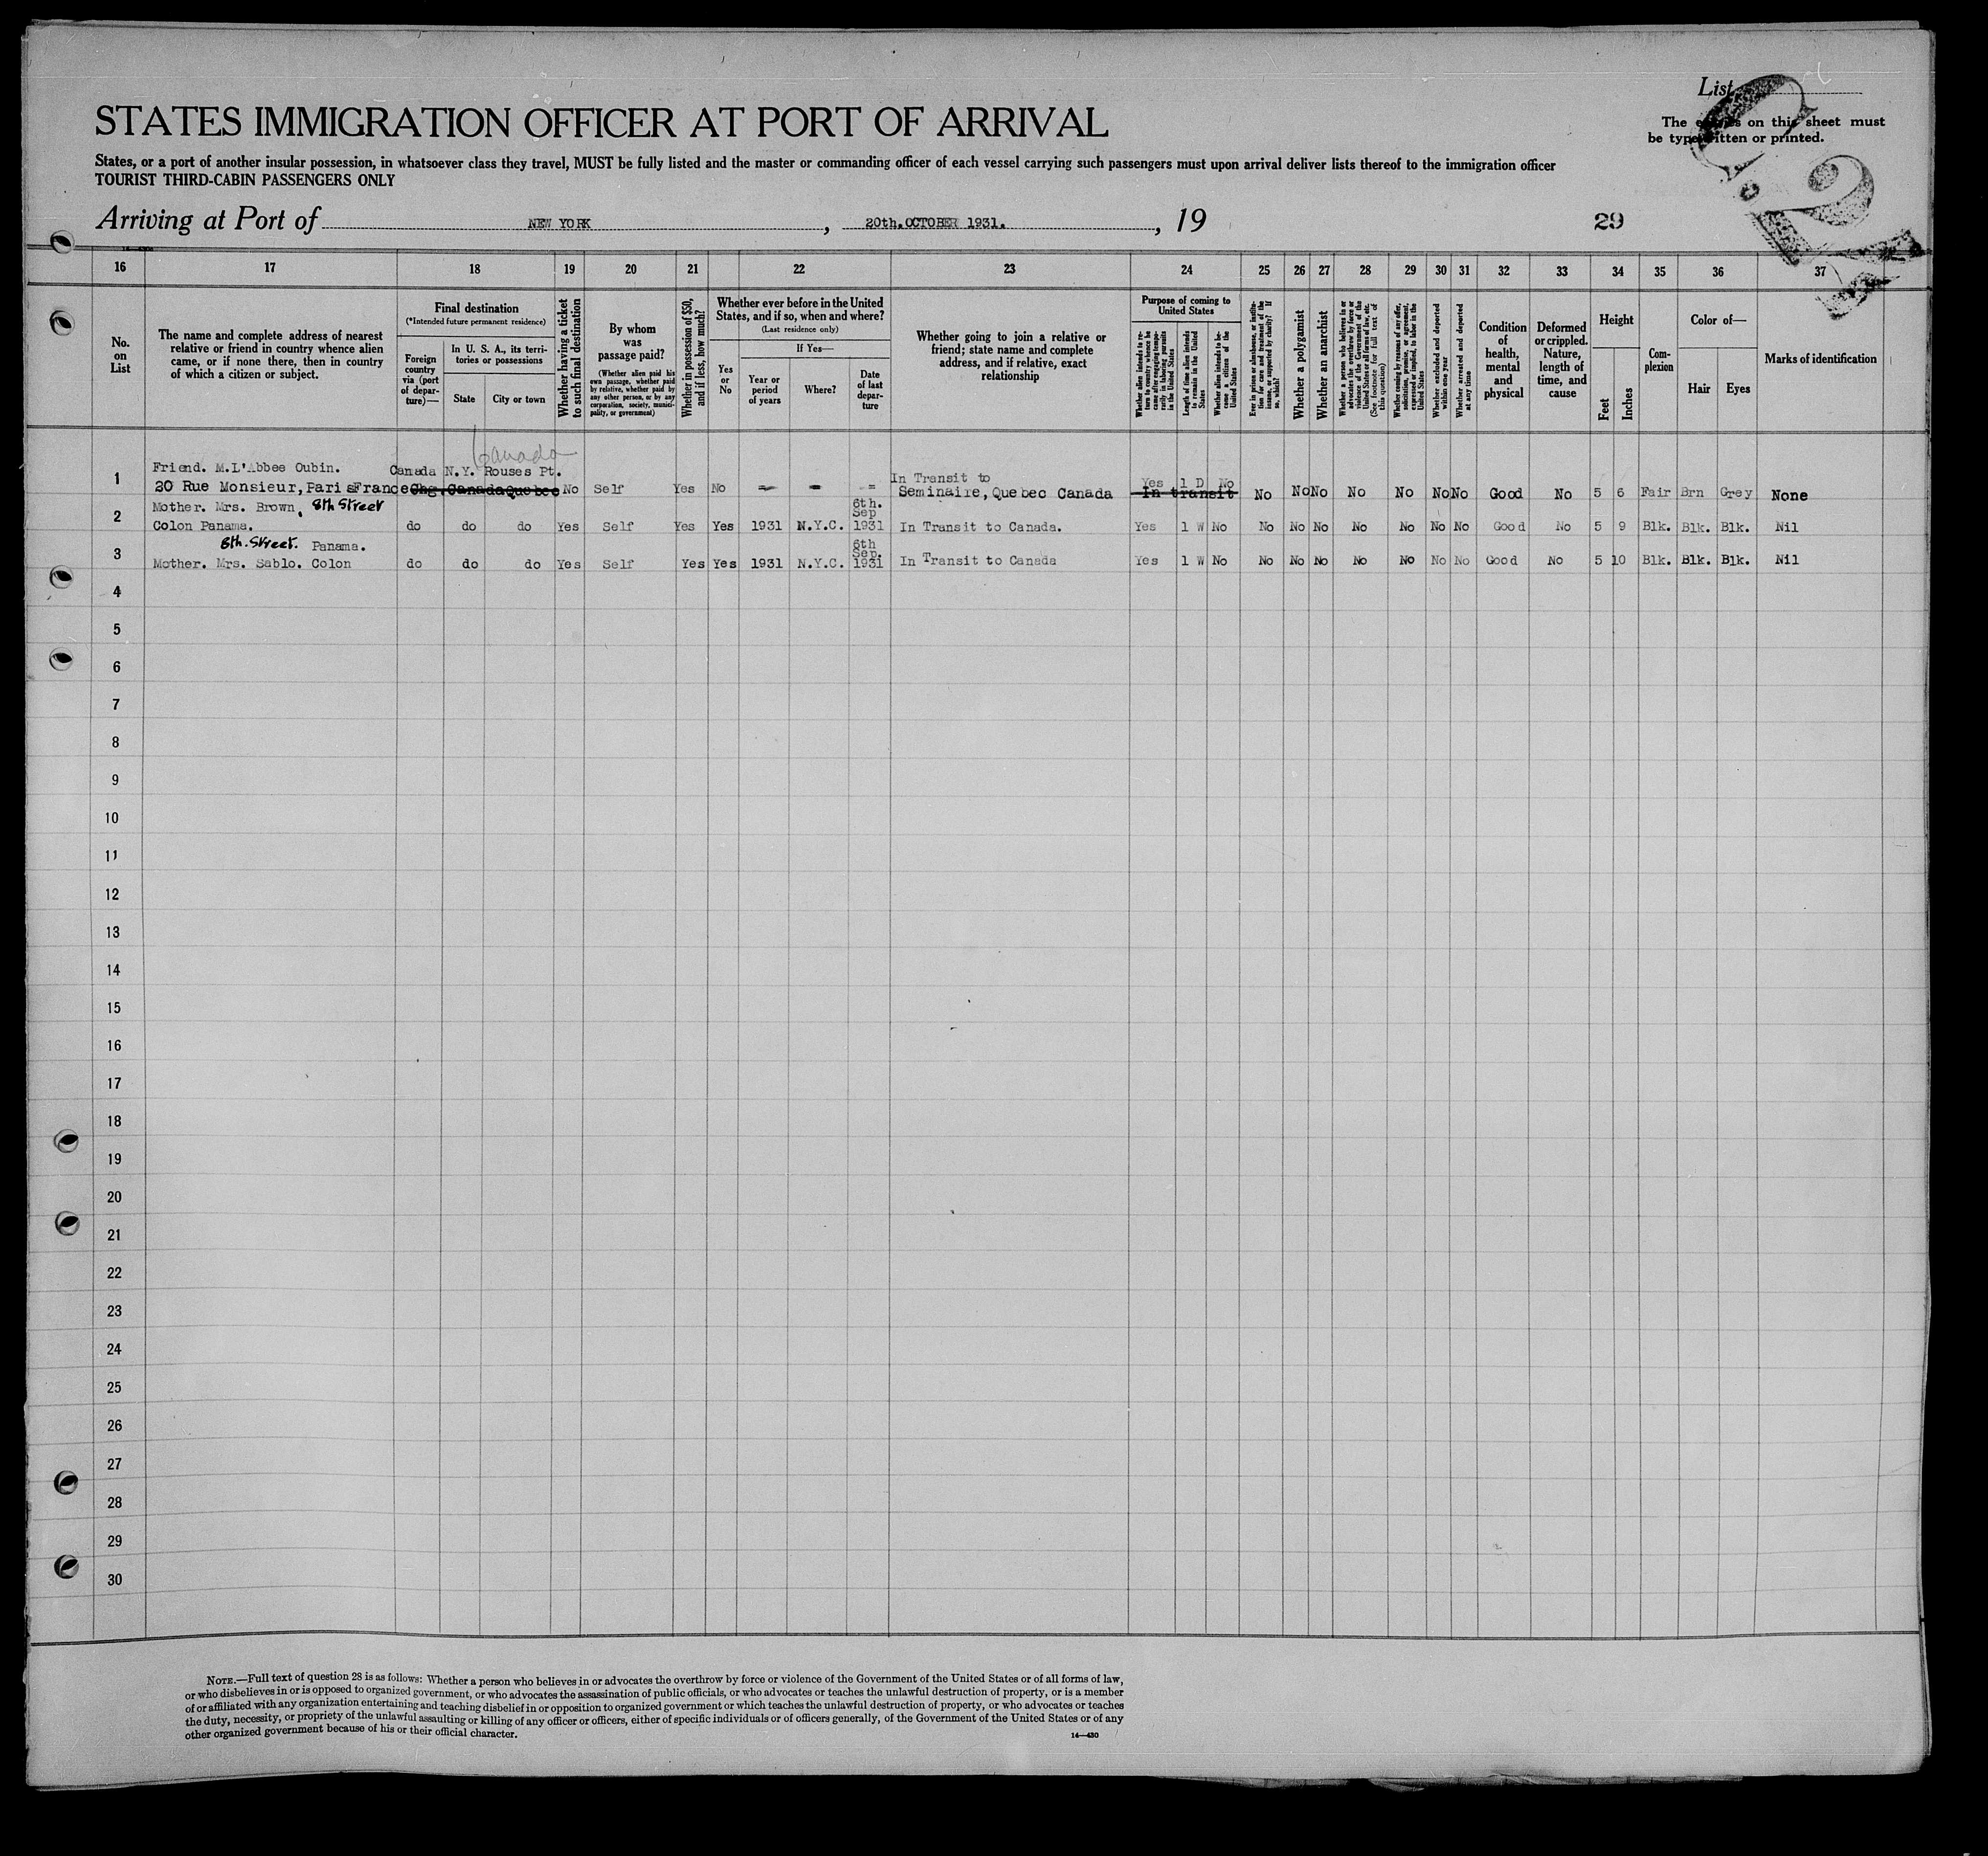 List
The entries on this sheet must
be typewritten or printed.
STATES IMMIGRATION OFFICER AT PORT OF ARRIVAL
States, or a port of another insular possession, in whatsoever class they travel, MUST be fully listed and the master or commanding officer of each vessel carrying such passengers must upon arrival deliver lists thereof to the immigration officer
TOURIST THIRD-CABIN PASSENGERS ONLY
Arriving at Port of NEW YORK, 20th. OCTOBER 1931., 19
29
16 17 18 19 20 21 22 23 24 25 26 27 28 29 30 31 32 33 34 35 36 37
No. on List
The name and complete address of nearest relative or friend in country whence alien came, or if none there, then in country of which a citizen or subject.
Final destination
(*Intended future permanent residence)
Foreign country via (port of departure)—
In U. S. A., its territories or possessions
State
City or town
Whether having a ticket to such final destination
By whom was passage paid?
(Whether alien paid his own passage, whether paid by relative, whether paid by any other person, or by any corporation, society, municipality, or government)
Whether in possession of $50, and if less, how much?
Whether ever before in the United States, and if so, when and where?
(Last residence only)
Yes or No
If Yes—
Year or period of years
Where?
Date of last departure
Whether going to join a relative or friend; state name and complete address, and if relative, exact relationship
Purpose of coming to United States
Whether alien intends to return to country whence he came after engaging temporarily in laboring pursuits in the United States
Length of time alien intends to remain in the United States
Whether alien intends to become a citizen of the United States
Ever in prison or almshouse, or institution for care and treatment of the insane, or supported by charity? If so, which?
Whether a polygamist
Whether an anarchist
Whether a person who believes in or advocates the overthrow by force or violence of the Government of the United States or all forms of law, etc. (See footnote for full text of this question)
Whether coming by reasons of any offer, solicitation, promise, or agreement, expressed or implied, to labor in the United States
Whether excluded and deported within one year
Whether arrested and deported at any time
Condition of health, mental and physical
Deformed or crippled. Nature, length of time, and cause
Height
Feet
Inches
Complexion
Color of—
Hair
Eyes
Marks of identification
Canada
Friend. M.L'Abbee Oubin. Canada N.Y. Rouses Pt. In Transit to Yes 1 D No
1 20 Rue Monsieur, Paris France Chg. Canada Quebec No Self Yes No - - = Seminaire, Quebec Canada In transit No No No No No No No Good No 5 6 Fair Brn Grey None
Mother. Mrs. Brown, 8th Street 6th. Sep
2 Colon Panama. do do do Yes Self Yes Yes 1931 N.Y.C. 1931 In Transit to Canada. Yes 1 W No No No No No No No No Good No 5 9 Blk. Blk. Blk. Nil
8th. Street. Panama. 6th Sep.
3 Mother. Mrs. Sablo. Colon do do do Yes Self Yes Yes 1931 N.Y.C. 1931 In Transit to Canada Yes 1 W No No No No No No No No Good No 5 10 Blk. Blk. Blk. Nil
4
5
6
7
8
9
10
11
12
13
14
15
16
17
18
19
20
21
22
23
24
25
26
27
28
29
30
NOTE.—Full text of question 28 is as follows: Whether a person who believes in or advocates the overthrow by force or violence of the Government of the United States or of all forms of law,
or who disbelieves in or is opposed to organized government, or who advocates the assassination of public officials, or who advocates or teaches the unlawful destruction of property, or is a member
of or affiliated with any organization entertaining and teaching disbelief in or opposition to organized government or which teaches the unlawful destruction of property, or who advocates or teaches
the duty, necessity, or propriety of the unlawful assaulting or killing of any officer or officers, either of specific individuals or of officers generally, of the Government of the United States or of any
other organized government because of his or their official character.
14—430